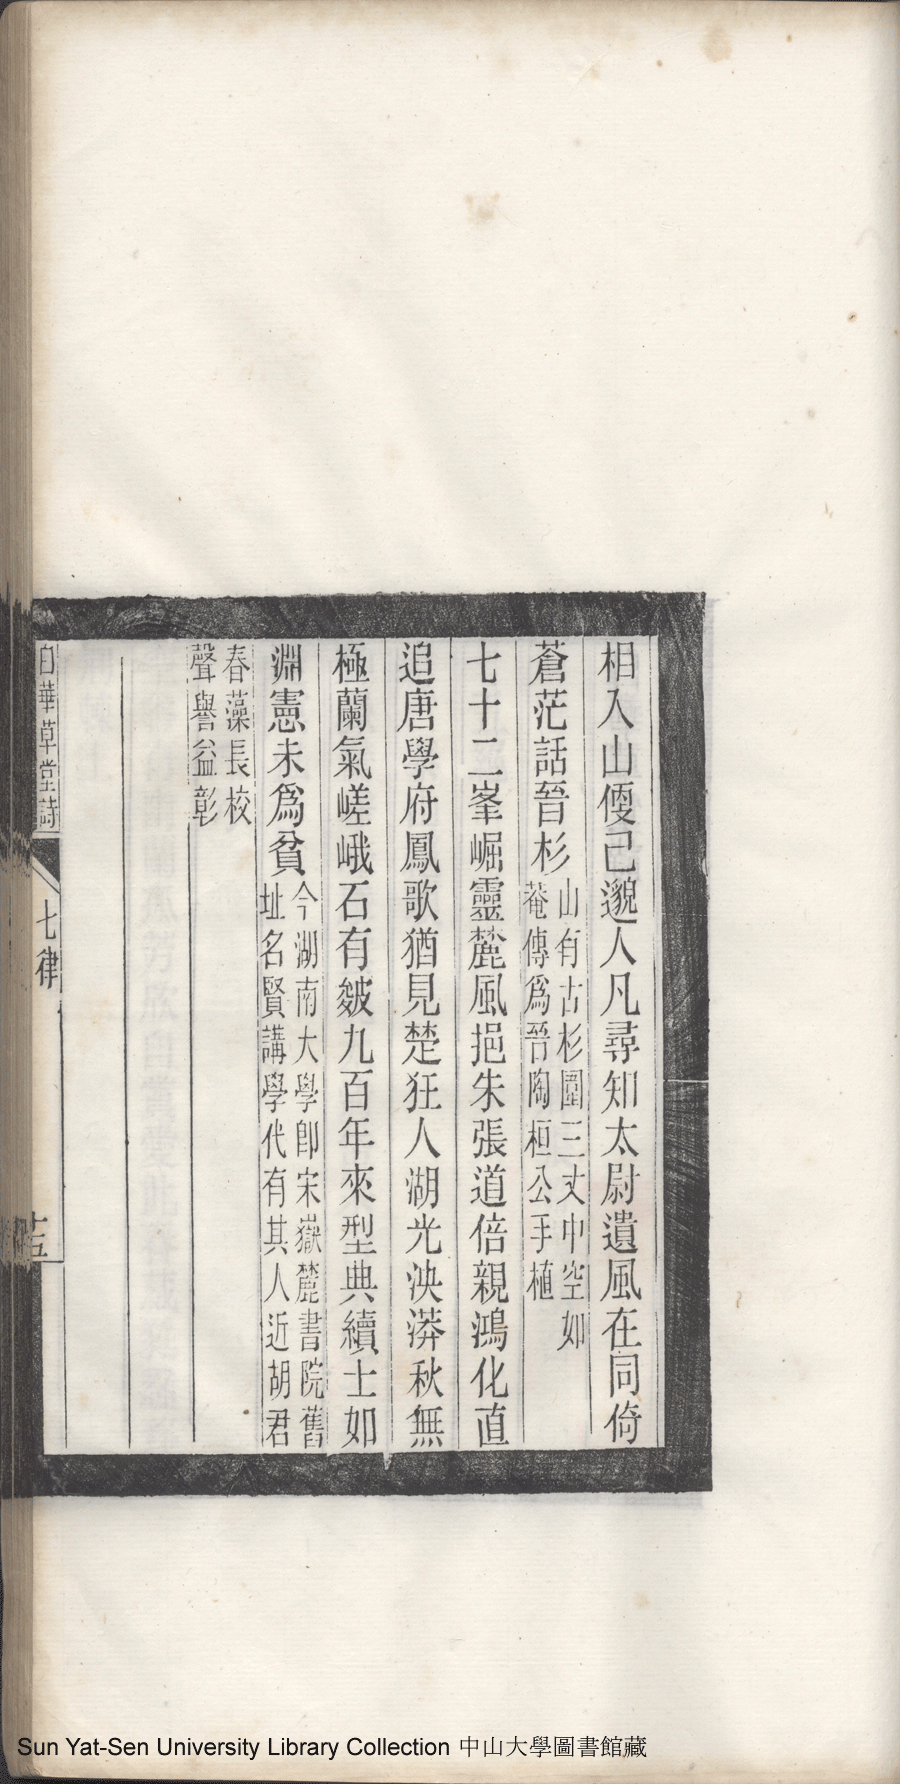 相入山偠己邈人凡尋知太尉遺風在同倚
蒼茫話晉杉山有古杉圍三丈中空如菴傳爲晉陶桓公手植
七十二峯崛靈麓風挹朱張道倍親鴻化直
追唐學府鳳歌猶見楚狂人湖光泱漭秋無
極蘭氣嵯峨石有皴九百年來型典續士如
淵憲未爲貧今湖南大學卽宋嶽麓書院舊址名賢講學代有其人近胡君
春藻長校聲譽益彰
白華草堂詩
七律
十五
Sun Yat-Sen University Library Collection 中山大學圖書館藏